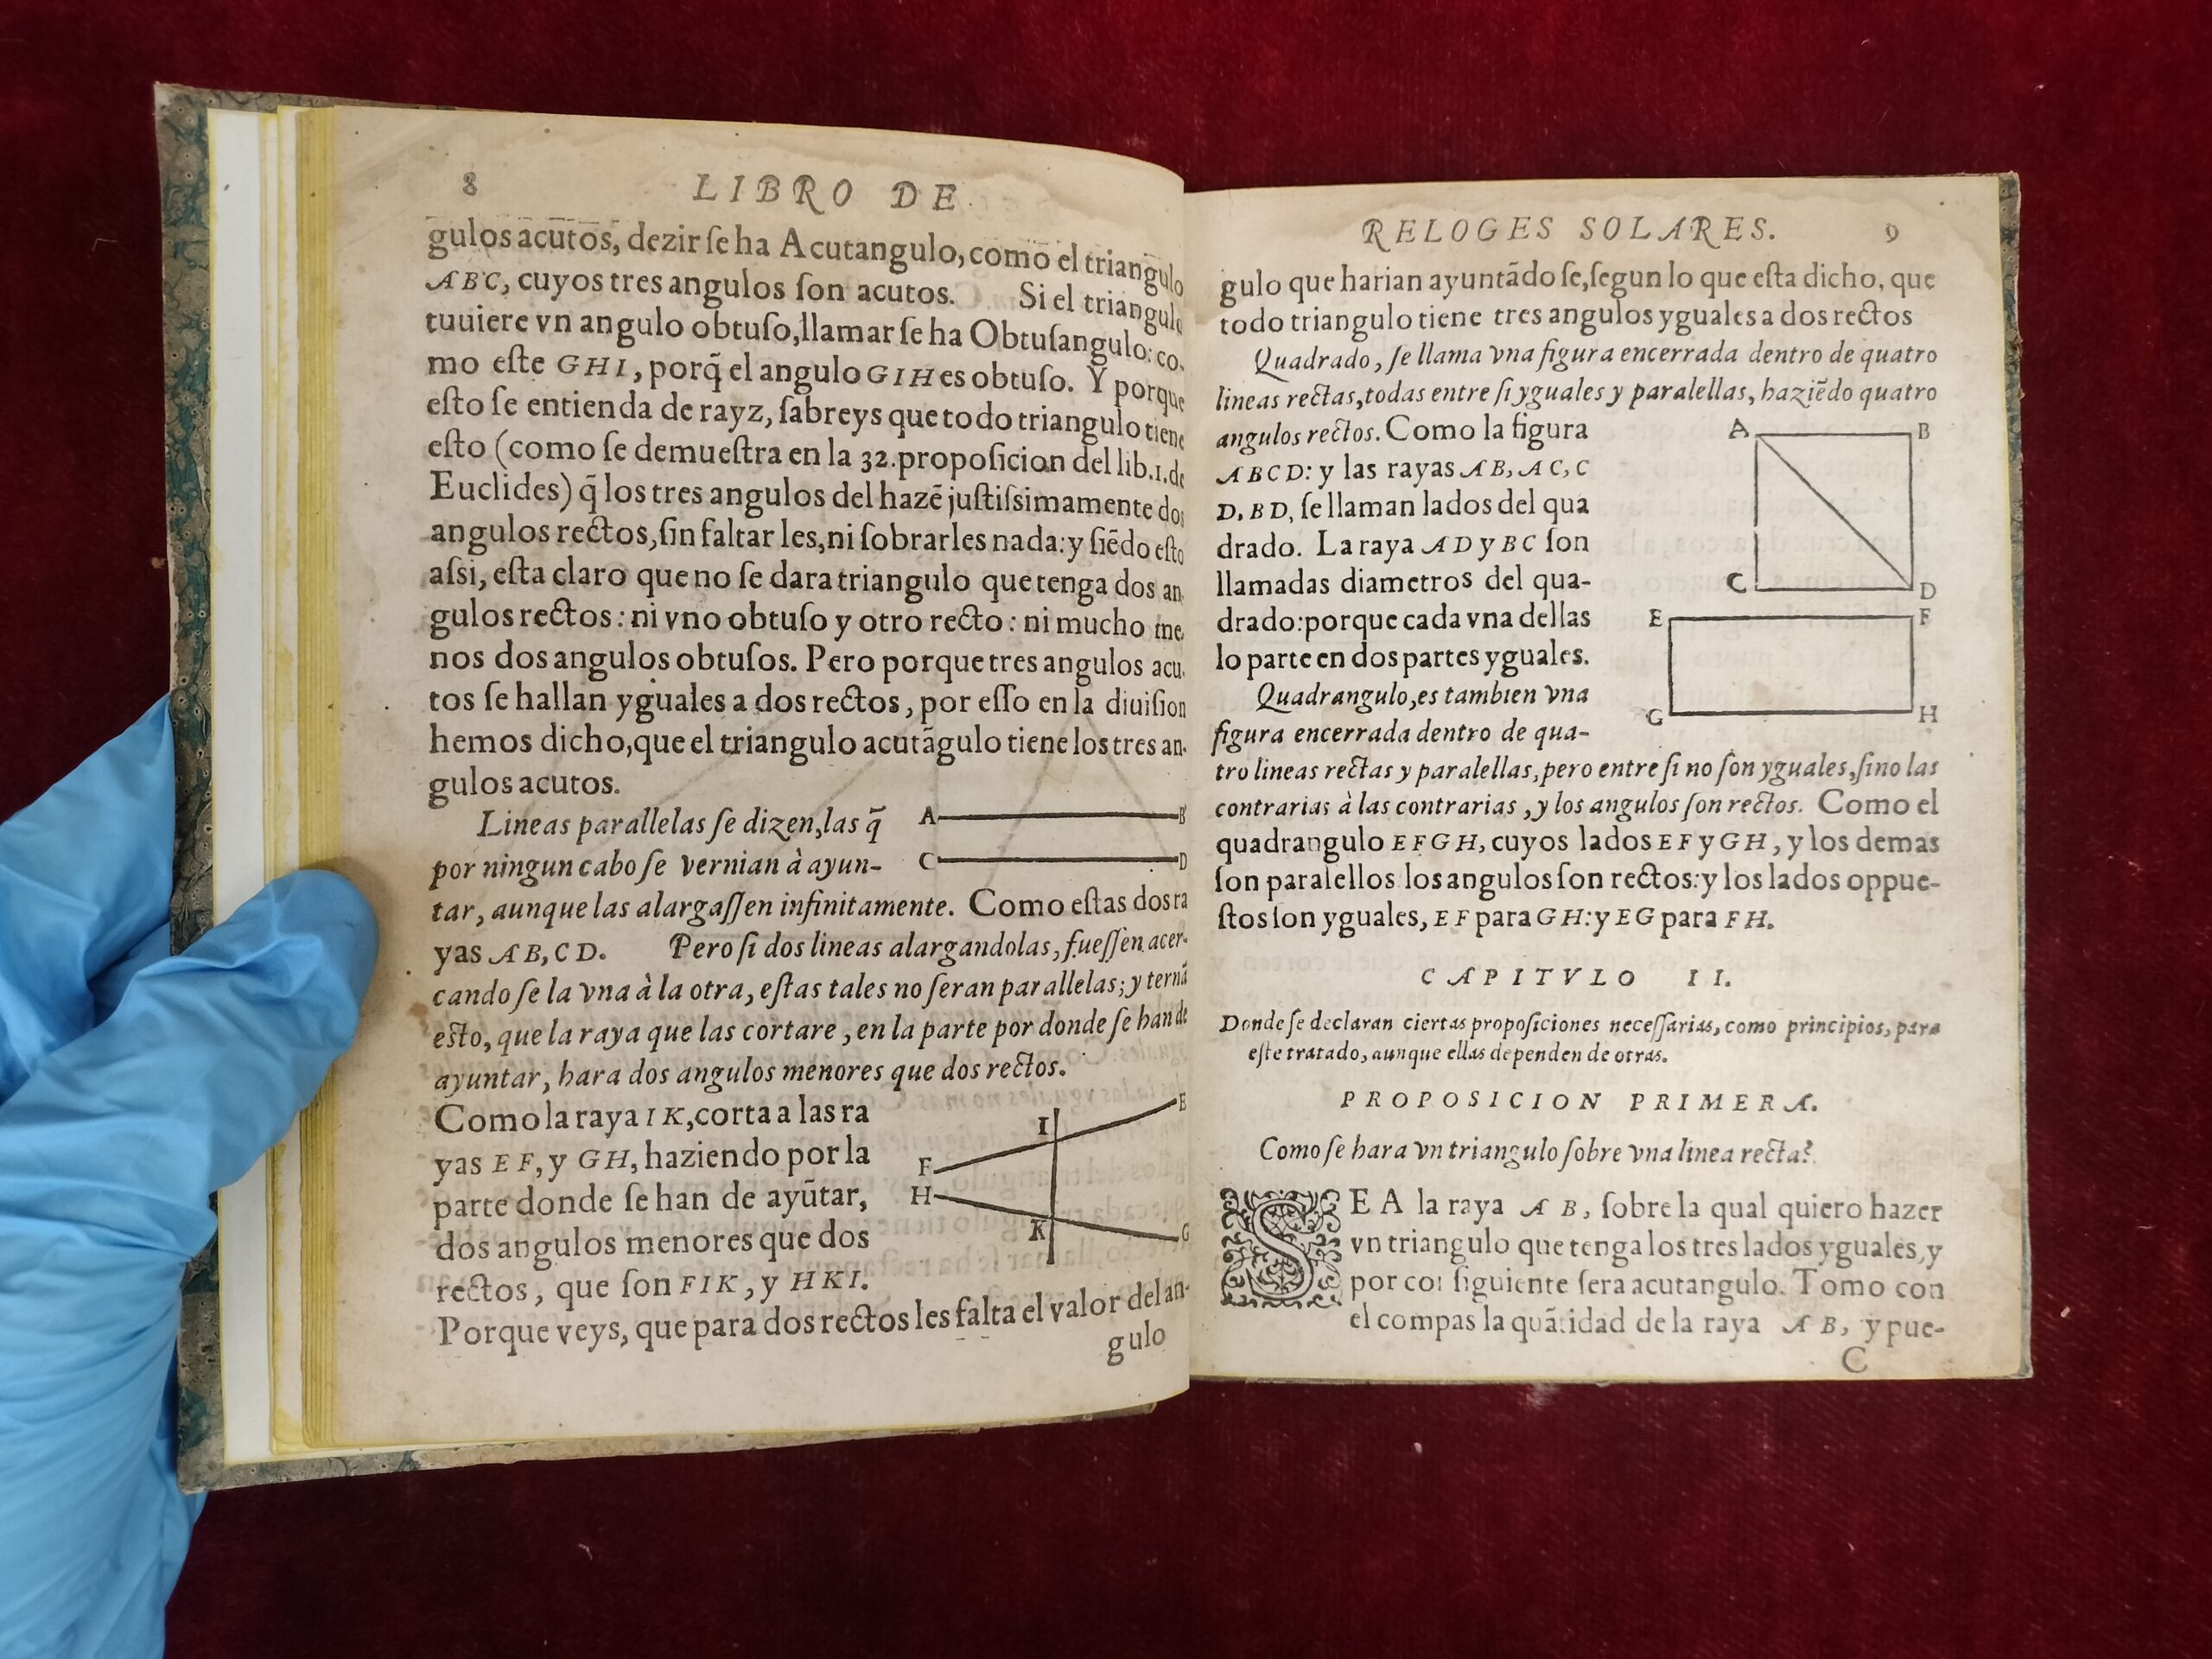 8 LIBRO DE
gulos acutos, dezir ſe ha Acutangulo, como el triangulo
ABC, cuyos tres angulos ſon acutos. Si el triangulo
tuuiere vn angulo obtuſo, llamar ſe ha Obtuſangulo: co-
mo eſte GHI, porq̃ el angulo GIH es obtuſo. Y porque
eſto ſe entienda de rayz, ſabreys que todo triangulo tiene
eſto (como ſe demueſtra en la 32. propoſicion del lib. 1. de
Euclides) q̃ los tres angulos del hazẽ juſtiſsimamente dos
angulos rectos, ſin faltar les, ni ſobrarles nada: y ſiẽdo eſto
aſsi, eſta claro que no ſe dara triangulo que tenga dos an
gulos rectos: ni vno obtuſo y otro recto: ni mucho me
nos dos angulos obtuſos. Pero porque tres angulos acu-
tos ſe hallan yguales a dos rectos, por eſſo en la diuiſion
hemos dicho, que el triangulo acutãgulo tiene los tres an-
gulos acutos.
Lineas parallelas ſe dizen, las q̃
por ningun cabo ſe vernian à ayun-
tar, aunque las alargaſſen infinitamente. Como eſtas dos ra
yas AB, CD. Pero ſi dos lineas alargandolas, fueſſen acer-
cando ſe la vna à la otra, eſtas tales no ſeran parallelas; y ternã
eſto, que la raya que las cortare, en la parte por donde ſe han de
ayuntar, hara dos angulos menores que dos rectos.
Como la raya IK, corta a las ra
yas EF, y GH, haziendo por la
parte donde ſe han de ayũtar,
dos angulos menores que dos
rectos, que ſon FIK, y HKI.
Porque veys, que para dos rectos les falta el valor del an-
gulo
A B
C D
I E
F
H
K G
RELOGES SOLARES. 9
gulo que harian ayuntãdo ſe, ſegun lo que eſta dicho, que
todo triangulo tiene tres angulos yguales a dos rectos
Quadrado, ſe llama vna figura encerrada dentro de quatro
lineas rectas, todas entre ſi yguales y paralellas, haziẽdo quatro
angulos rectos. Como la figura
ABCD: y las rayas AB, AC, C
D, BD, ſe llaman lados del qua
drado. La raya AD y BC ſon
llamadas diametros del qua-
drado: porque cada vna dellas
lo parte en dos partes yguales.
Quadrangulo, es tambien vna
figura encerrada dentro de qua-
tro lineas rectas y paralellas, pero entre ſi no ſon yguales, ſino las
contrarias à las contrarias, y los angulos ſon rectos. Como el
quadrangulo EFGH, cuyos lados EF y GH, y los demas
ſon paralellos los angulos ſon rectos: y los lados oppue-
ſtos ſon yguales, EF para GH: y EG para FH.
A B
C D
E F
G H
CAPITVLO II.
Donde ſe declaran ciertas propoſiciones neceſſarias, como principios, para
eſte tratado, aunque ellas dependen de otras.
PROPOSICION PRIMERA.
Como ſe hara vn triangulo ſobre vna linea recta?
SEA la raya AB, ſobre la qual quiero hazer
vn triangulo que tenga los tres lados yguales, y
por coſ ſiguiente ſera acutangulo. Tomo con
el compas la quãtidad de la raya AB, y pue-
C